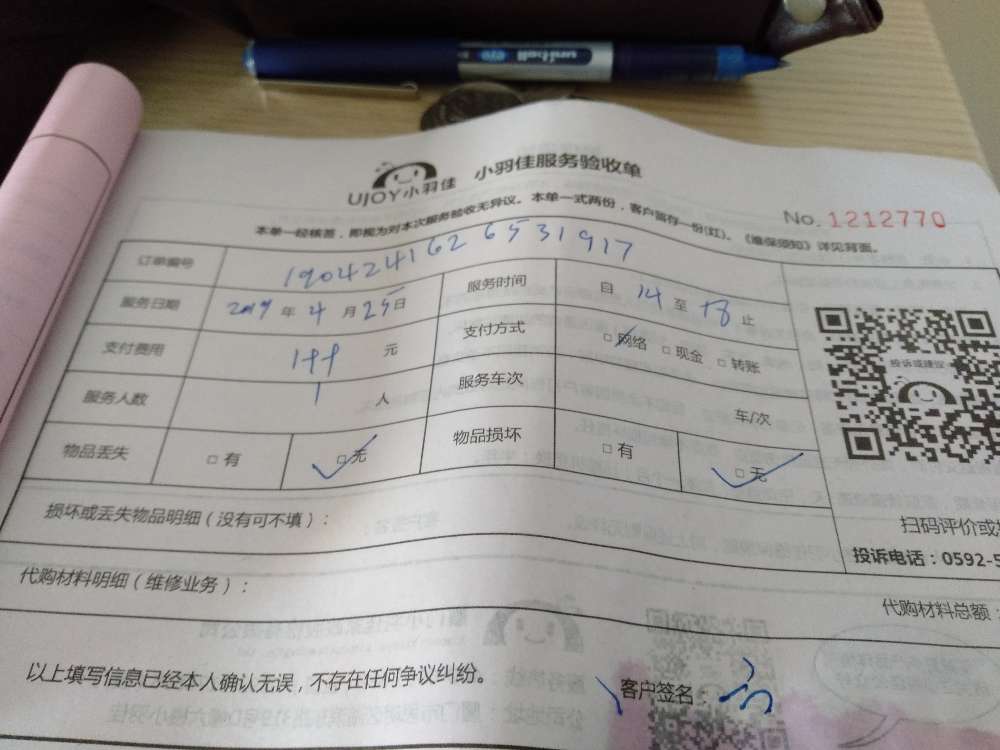 uni-ball
UJOY小羽佳 小羽佳服务验收单
No. 1212770
本单一经核签，即视为对本次服务验收无异议。本单一式两份，客户留存一份(红)。《维保须知》详见背面。
订单编号 1904241626531917
服务日期 2019 年 4 月 25 日 服务时间 自 14 至 18 止
支付费用 199 元 支付方式 □ 网络 □ 现金 □ 转账
服务人数 1 人 服务车次 车/次
物品丢失 □ 有 □ 无 物品损坏 □ 有 □ 无
投诉或建议
损坏或丢失物品明细（没有可不填）：
扫码评价或
投诉电话：0592-5
代购材料明细（维修业务）：
代购材料总额：
以上填写信息已经本人确认无误，不存在任何争议纠纷。
客户签名：